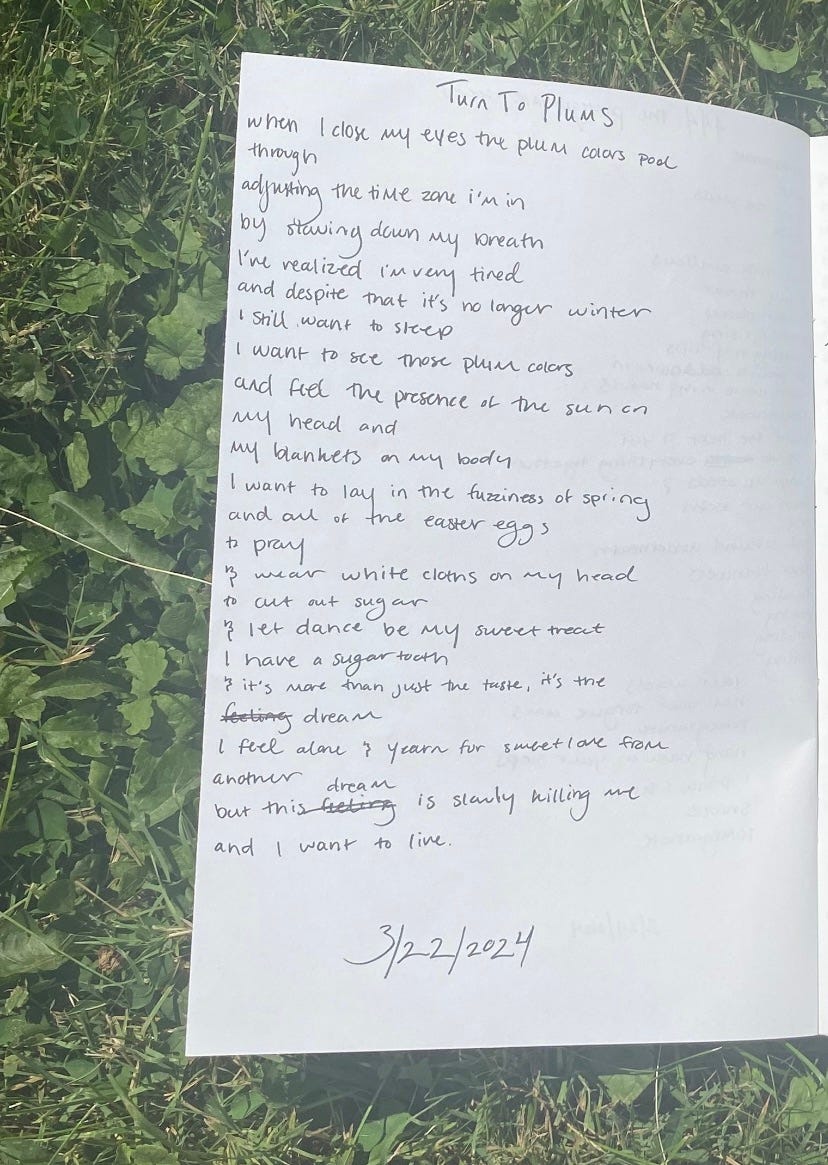 Turn To Plums
when I close my eyes the plum colors pool
through
adjusting the time zone i'm in
by slowing down my breath
I've realized i'm very tired
and despite that it's no longer winter
I still want to sleep
I want to see those plum colors
and feel the presence of the sun on
my head and
my blankets on my body
I want to lay in the fuzziness of spring
and all of the easter eggs
to pray
& wear white cloths on my head
to cut out sugar
& let dance be my sweet treat
I have a sugar tooth
& it's more than just the taste, it's the
feeling dream
I feel alone & yearn for sweet love from
another
dream
but this feeling is slowly killing me
and I want to live.
3/22/2024